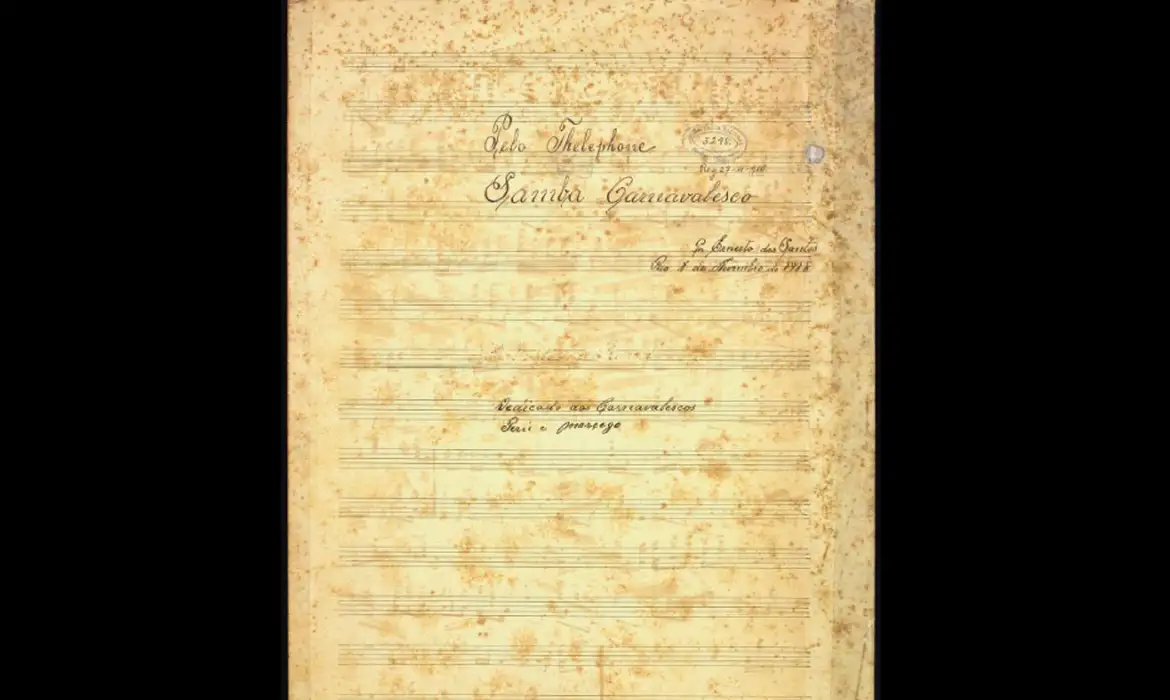 Pelo Thelephone
3295
Reg 27-11-916
Samba Carnavalesco
Por Ernesto dos Santos
Rio de Novembro de 1916
Dedicado aos Carnavalescos
Perú e morcego